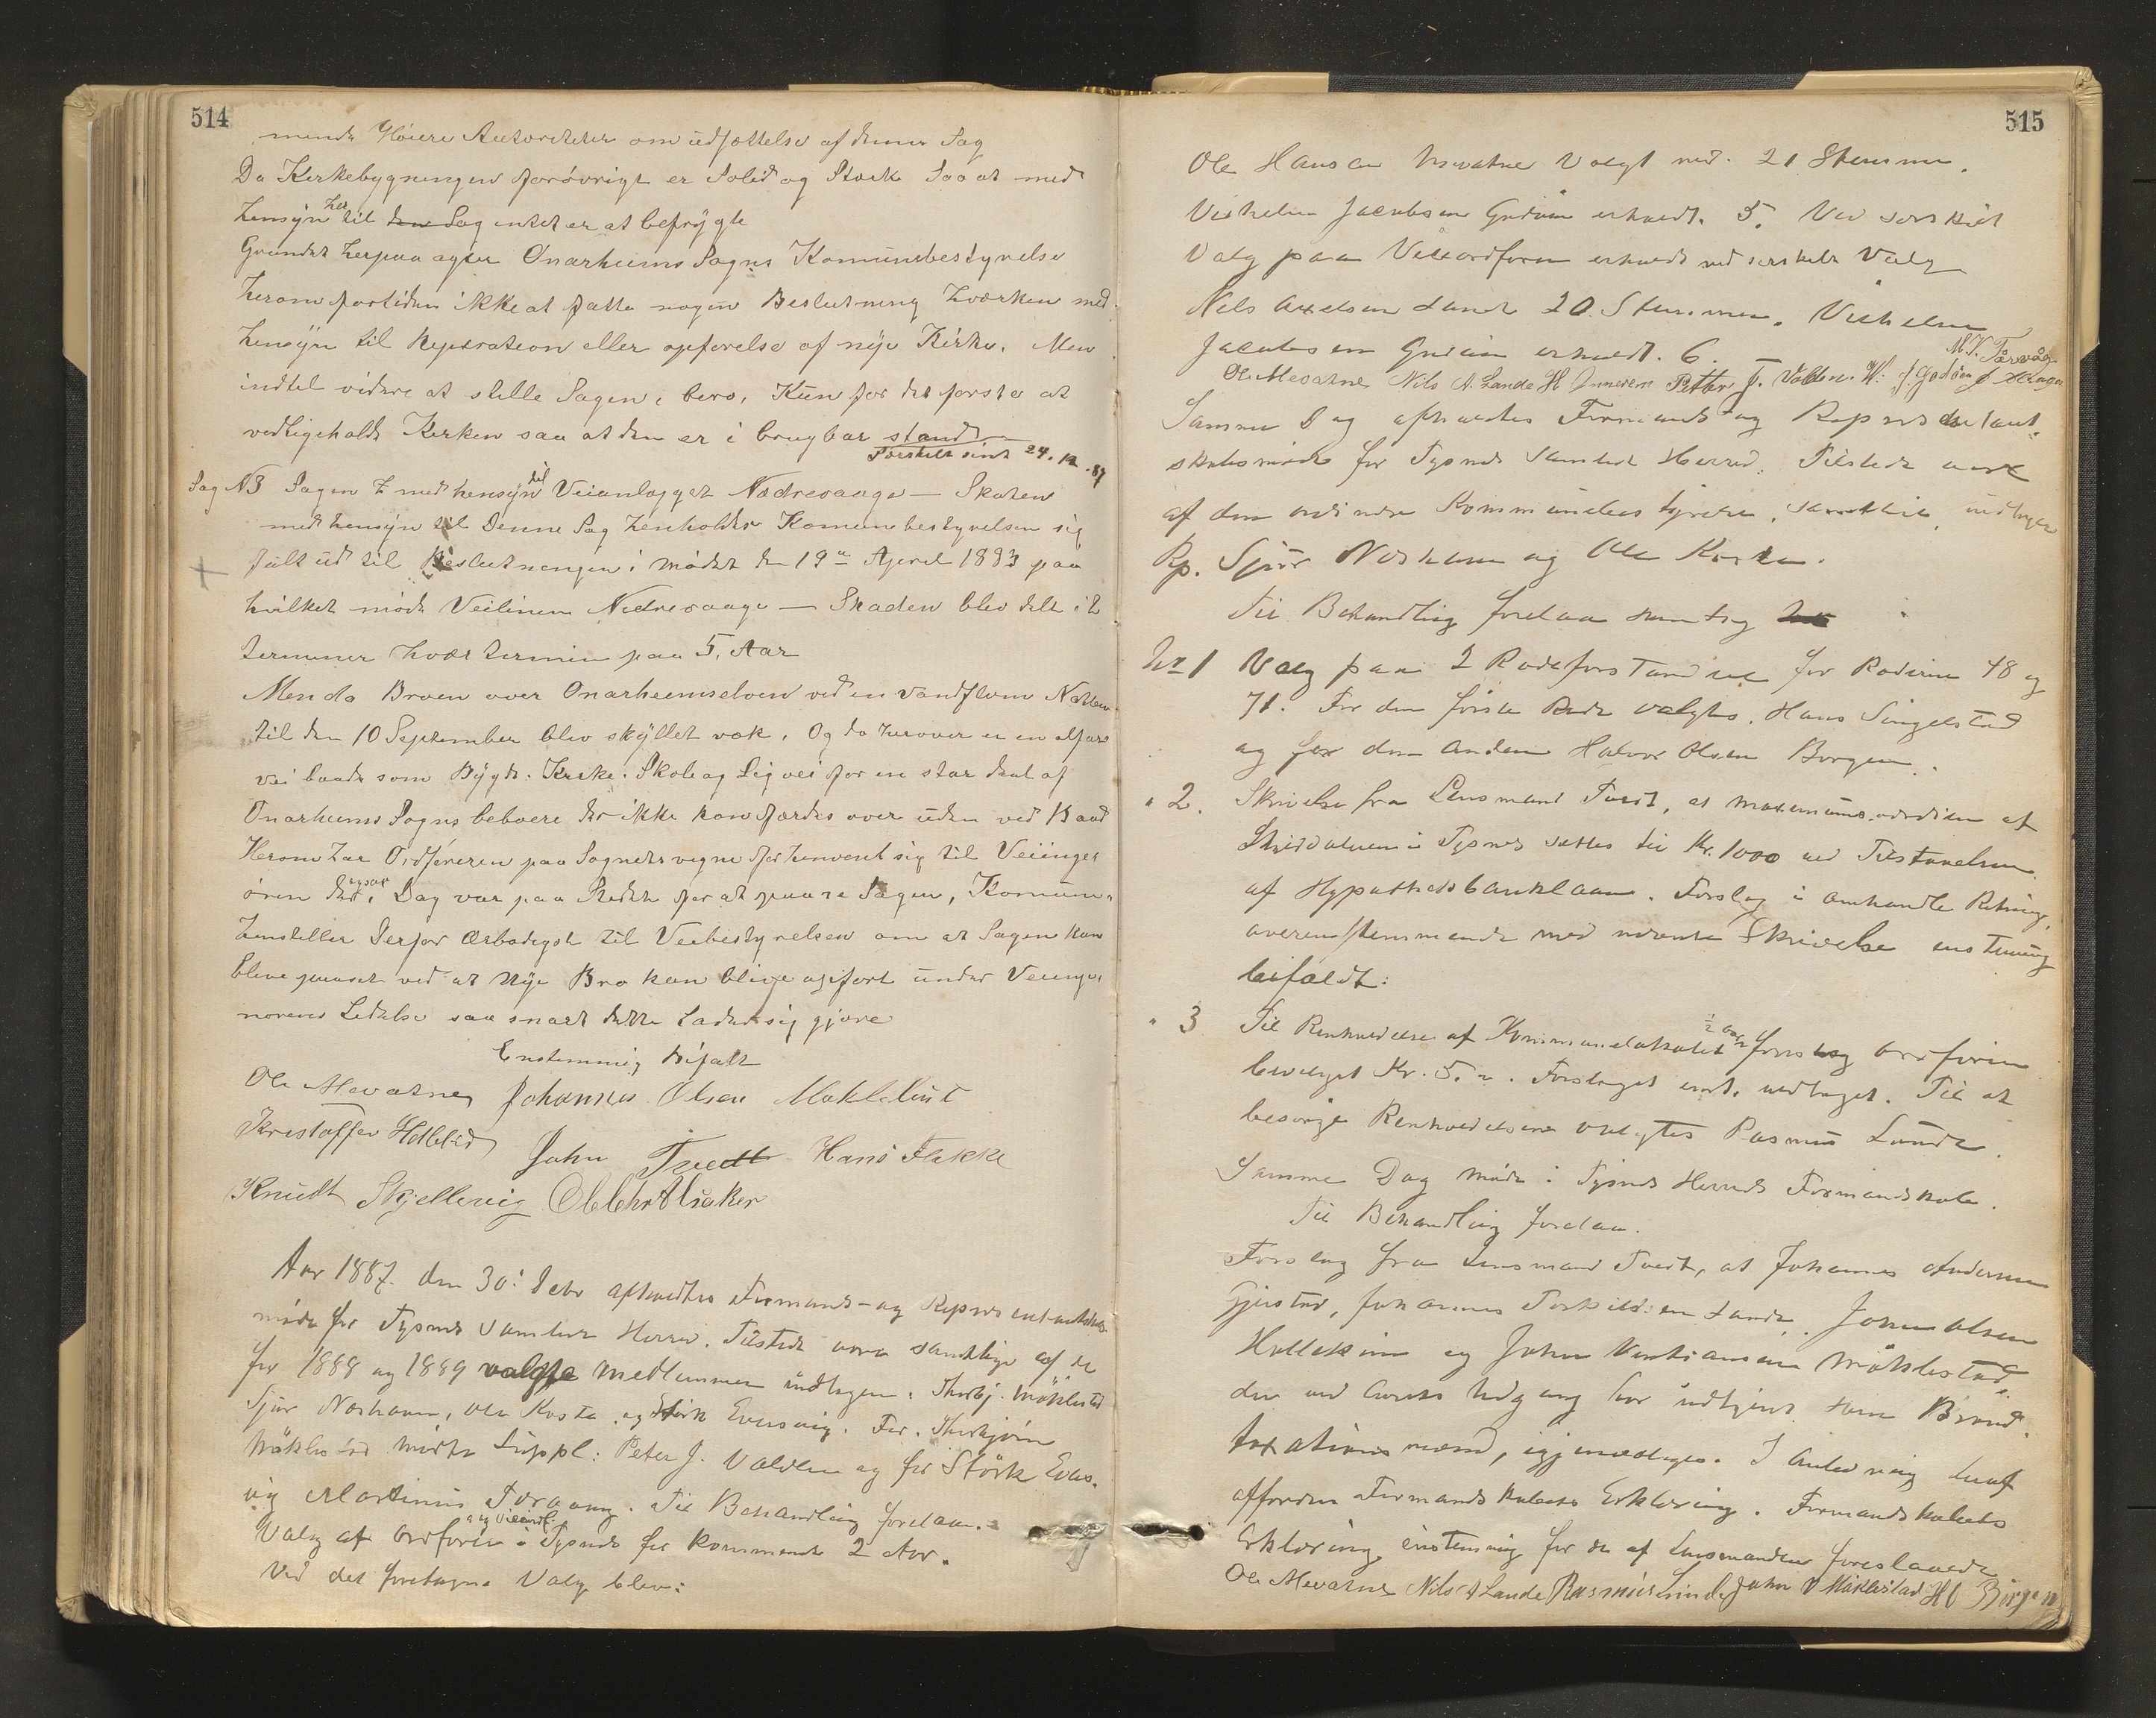 514
mende Høiere Autoriteter om udsættelse af denne Sag
Da Kirkebygningen forøvrigt er Solid og Stærk Saa at med
hensyn her til den Sag intet er at befrygte
Grundet herpaa agter Onarheims Sogns Komunebestyrelse
herom fortiden ikke at fatte nogen Beslutning hværken med
hensyn til Reperation eller opførelse af nye Kirke. Men
indtil videre at stille Sagen i bero, Kun for det første at
vedligeholde Kirken saa at den er i brugbar stand
Særskilt sendt 24.12.87
Sag N3 Sagen 7 med hensyn til Veianlægget Nedrevaage — Skaten
med hensyn til Denne Sag henholder Komunebestyrelsen sig
fuldt ud til Beslutningen i mødet den 19de April 1883 paa
hvilket møde Veilinien Nedrevaage — Skaden blev delt i 2
terminer hvær termin paa 5. Aar
Men da Broen over Onarheimselven ved en vandflom Natten
til den 10 September blev skyllet væk. Og da herover er en alfare
vei baade som Bygde. Kirke. Skole og Ligvei for en stor deel af
Onarheims Sogns beboere der ikke kan færdes over uden ved Baad
Herom har Ordføreren paa Sognets vegne før henvent sig til Veiinge
øren der igaar. Dag var paa Stedet for at paase Sagen, Komune.
henstiller Derfor ærbødigst til Veibestyrelsen om at Sagen kan
blive paaset ved at nye Bro kan blive opført under Veiinge
nørens Ledelse saa snart dette Lader sig gjøre
Enstemmig Bifalt
Ole Mevatne Johannes Olsen Møklebust
Kristoffer Helleland John Tvedt Hans Flakke
Knudt Skjellevig Ole Chr Alsaker
Aar 1887. den 30: Debr afholdtes Formands- og Repræsentantskabs
møde for Tysnes samlede Herred. Tilstede vare samtlige af de
for 1888 og 1889 valgte Medlemmer undtagen. Thorbj. Møklestad
Sjur Næshavn, Ole Koste og Størk Evensvig. For Thorbjørn
Møklestad mødte Suppl: Peter J. Valden og for Størk Evens.
vig Martinus Torvaag. Til Behandling forelaa.
Valg af Ordfører og Viceordf. i Tysnes for kommende 2 Aar.
Ved det foretagne Valg blev:
515
Ole Hansen Mevatne valgt med 21 Stemmer.
Vilhelm Jacobsen Godøen erholdt 5. Ved særskilt
Valg paa Viceordfører erholdt ved særskilt Valg
Nils Axelsen Lande 20 Stemmer. Vilhelm
Jacobsen Godøen erholdt 6.
M. K. Tårvåg
Ole Mevatne Nils A. Lande Petter J. Valden. W: J. Godøen
Samme Dag afholdtes Formands og Repræsentant
skabsmøde for Tysnes samlede Herred. Tilstede vare
af den ordinære Kommunebestyrelse, samtlige undtagen
Rp. Sjur Næshavn og Ole Koste.
Til Behandling forelaa som Sag
No 1 Valg paa 2 Rodeforstandere for Roderne 48 og
71. For den første Rode valgtes Hans Singelstad
og for den anden Halvor Olsen Borgen.
" 2. Skrivelse fra Lensmand Tvedt, at maximumsværdien af
Skylddaleren i Tysnes sættes til Kr. 1000 ved Tilstaaelsen
af Hypothekbanklaan. Forslag i omhandlede Retning,
overensstemmende med nævnte Skrivelse enstemmig
bifaldt.
" 3 Til Renholdelse af Kommunelokalet 1/2 Aar foreslog Ordføreren
bevilget Kr. 5.~. Forslaget enst. vedtaget. Til at
besørge Renholdelsen valgtes Rasmus Lunde.
Samme Dag møde i Tysnes Herreds Formandskab.
Til Behandling forelaa.
Forslag fra Lensmand Tvedt, at Johannes Andersen
Gjerstad, Johannes Torkildsen Lande, John Olsen
Hollekim og John Kristiansen Møklestad,
der ved Aarets Udgang har udtjent som Brand.
taxationsmænd, igjenvælges. I Anledning heraf
affordres Formandskabets Erklæring. Formandskabets
Erklæring enstemmig for de af Lensmanden foreslaaede
Ole Mevatne Nils A Lande Rasmus Lunde John K Møklestad HO Borgen